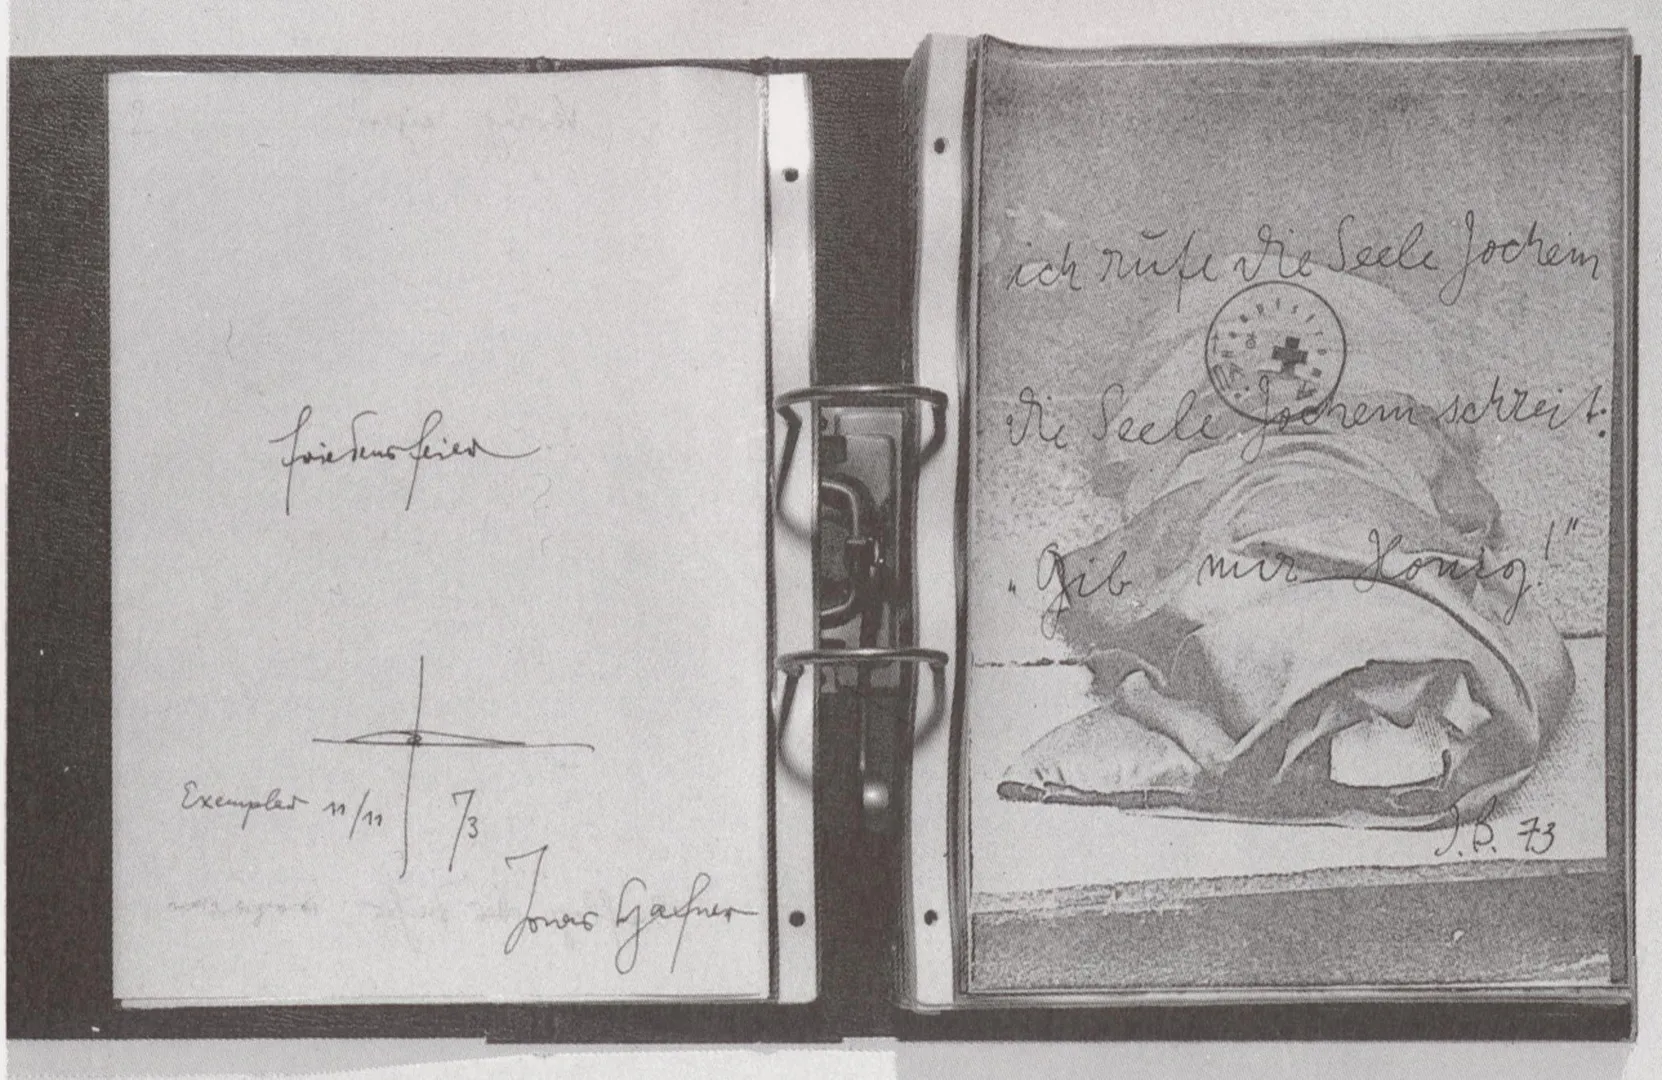 Friedensfeier
Exemplar 11/11 73
Jonas Hafner
ich rufe die Seele Jochem
Hauptstrom
die Seele Jochem schreit:
„Gib mir Honig!“
J.B. 73